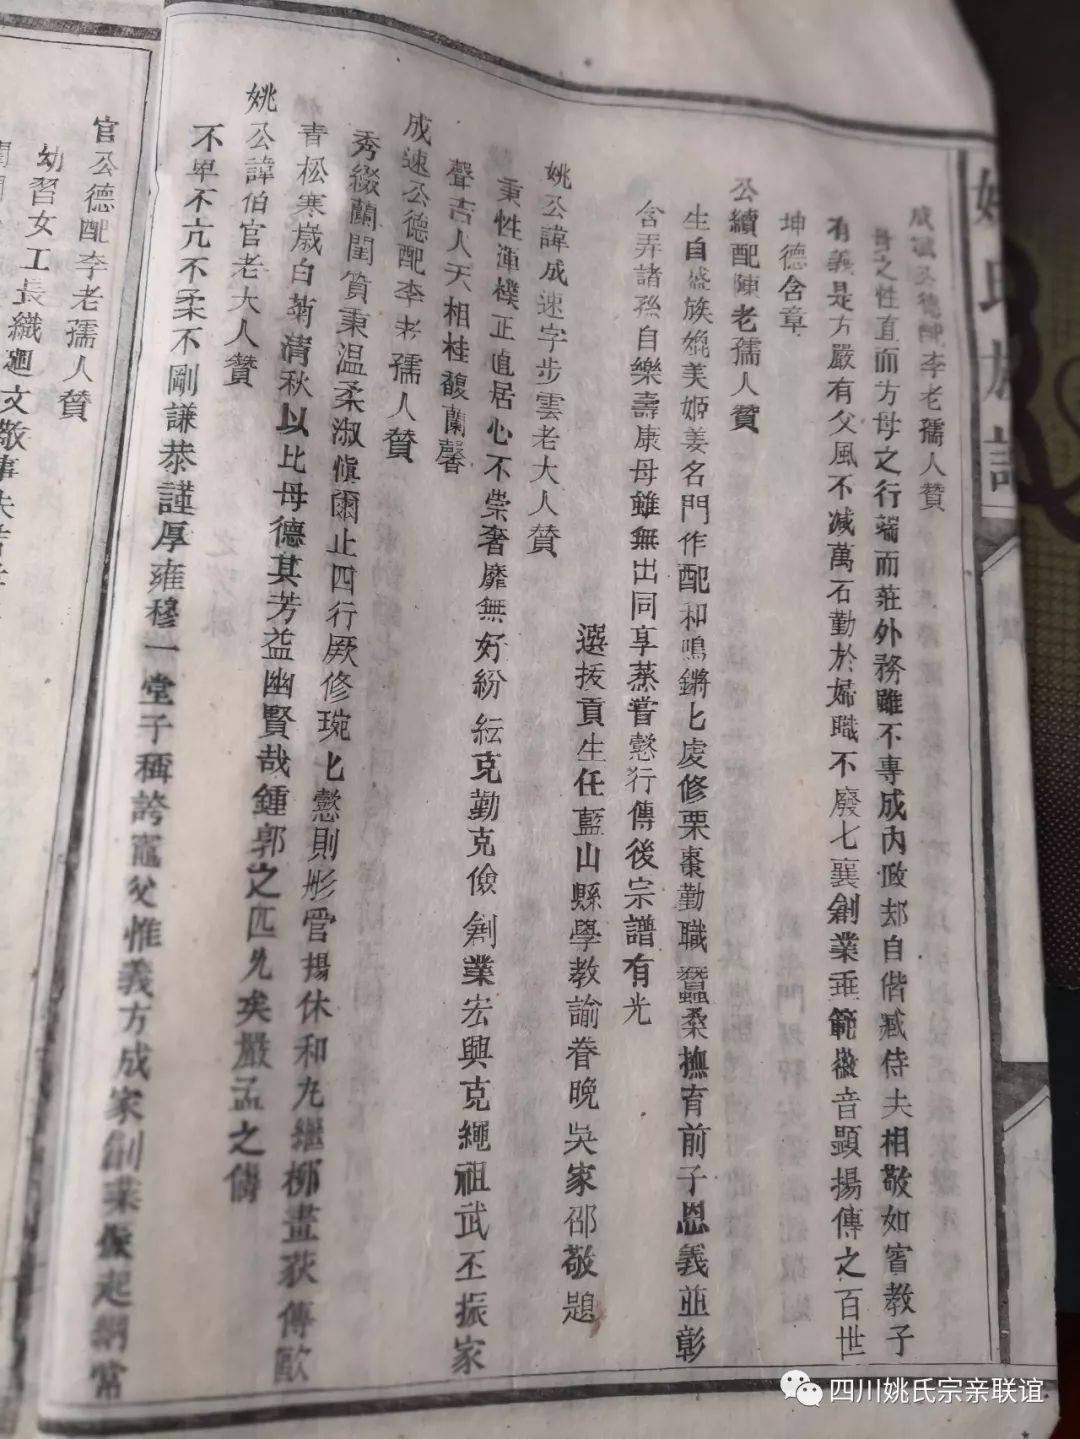 姚氏族譜
成 公德配李老孺人贊
母之性直而方母之行端而莊外務雖不專成內政却自偕臧侍夫相敬如賓教子
有義是方嚴有父風不減萬石勤於婦職不廢七襄創業垂範徽音顯揚傳之百世
坤德含章
公續配陳老孺人贊
生自盛族媲美姬姜名門作配和鳴鏘匕虔修栗棗勤職蠶桑撫育前子恩義並彰
含弄諸孫自樂壽康母雖無出同享蒸嘗懿行傳後宗譜有光
選拔貢生任藍山縣學教諭眷晚吳家邵敬題
姚公諱成速字步雲老大人贊
秉性渾樸正直居心不崇奢靡無好紛紜克勤克儉創業宏興克繩祖武丕振家
聲吉人天相桂馥蘭馨
成速公德配李老孺人贊
秀綴蘭閨質秉溫柔淑愼爾止四行厥修琬匕懿則彤管揚休和九繼柳畫荻傳歐
青松寒歲白菊清秋以比母德其芳益幽賢哉鍾郭之匹允矣嚴孟之儔
姚公諱伯官老大人贊
不卑不亢不柔不剛謙恭謹厚雍穆一堂子稱誇竈父惟義方成家創業振起綱常
官公德配李老孺人贊
幼習女工長織廻文敬事夫
四川姚氏宗亲联谊